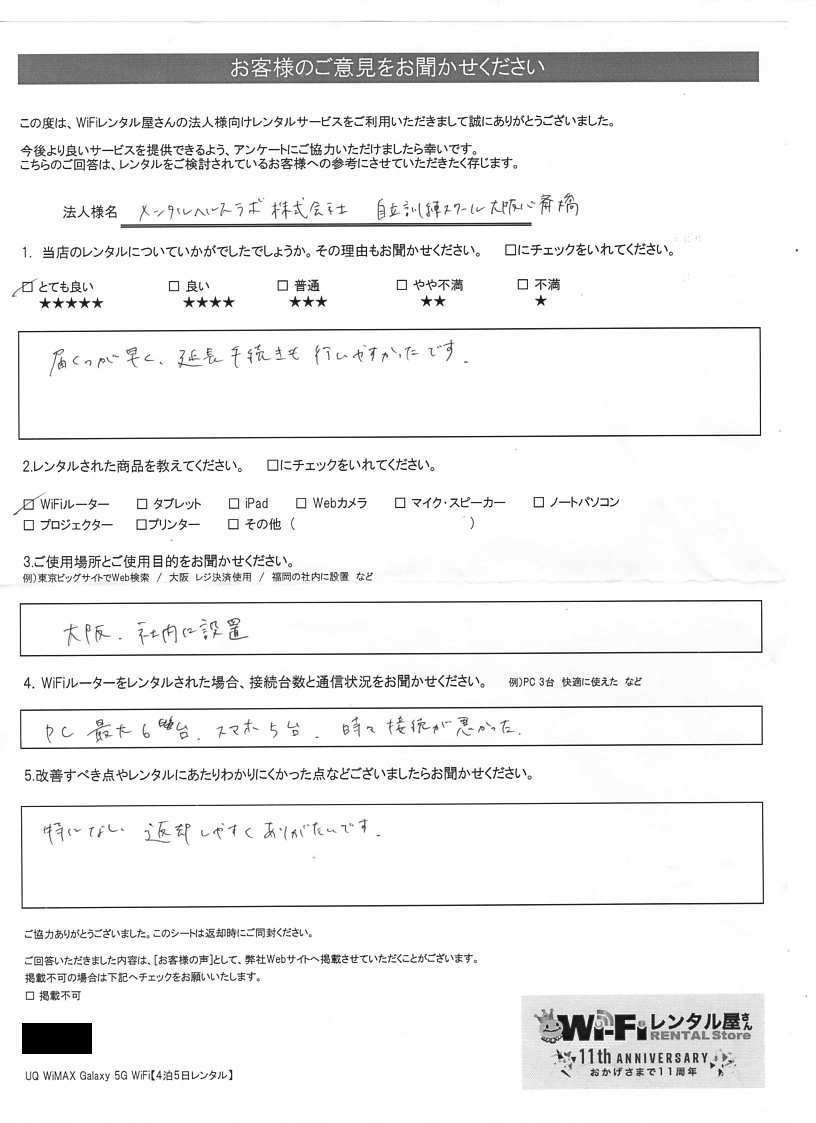 お客様のご意見をお聞かせください
この度は、WiFiレンタル屋さんの法人様向けレンタルサービスをご利用いただきまして誠にありがとうございました。
今後より良いサービスを提供できるよう、アンケートにご協力いただけましたら幸いです。
こちらのご回答は、レンタルをご検討されているお客様への参考にさせていただきたく存じます。
法人様名 メンタルヘルスラボ 株式会社 自立訓練スクール大阪心斎橋
1. 当店のレンタルについていかがでしたでしょうか。その理由もお聞かせください。 □にチェックをいれてください。
☑ とても良い □ 良い □ 普通 □ やや不満 □ 不満
★★★★★ ★★★★ ★★★ ★★ ★
届くのが早く、延長手続きも行いやすかったです。
2.レンタルされた商品を教えてください。 □にチェックをいれてください。
☑ WiFiルーター □ タブレット □ iPad □ Webカメラ □ マイク・スピーカー □ ノートパソコン
□ プロジェクター □プリンター □ その他 ( )
3.ご使用場所とご使用目的をお聞かせください。
例)東京ビッグサイトでWeb検索 / 大阪 レジ決済使用 / 福岡の社内に設置 など
大阪、社内に設置
4. WiFiルーターをレンタルされた場合、接続台数と通信状況をお聞かせください。 例)PC 3台 快適に使えた など
PC 最大6台、スマホ5台、時々接続が悪かった。
5.改善すべき点やレンタルにあたりわかりにくかった点などございましたらお聞かせください。
特になし 返却しやすくありがたいです。
ご協力ありがとうございました。このシートは返却時にご同封ください。
ご回答いただきました内容は、[お客様の声]として、弊社Webサイトへ掲載させていただくことがございます。
掲載不可の場合は下記へチェックをお願いいたします。
□ 掲載不可
Wi-Fiレンタル屋さん
RENTAL Store
11th ANNIVERSARY
おかげさまで11周年
UQ WiMAX Galaxy 5G WiFi【4泊5日レンタル】